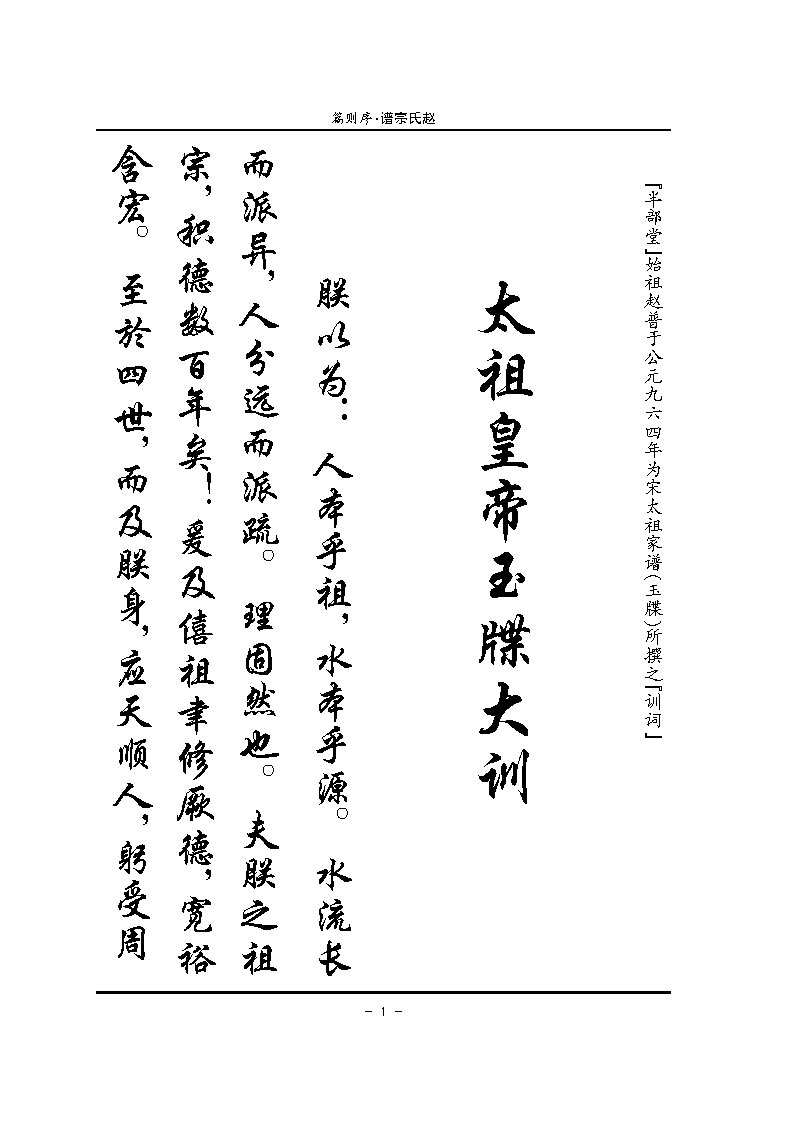 篇则序·谱宗氏赵
『半部堂』始祖赵普于公元九六四年为宋太祖家谱(玉牒)所撰之『训词』
太祖皇帝玉牒大训
朕以为：人本乎祖，水本乎源。水流长
而派异，人分远而派疏。理固然也。夫朕之祖
宗，积德数百年矣！爰及僖祖聿修厥德，宽裕
含宏。至於四世，而及朕身，应天顺人，躬受周
- 1 -